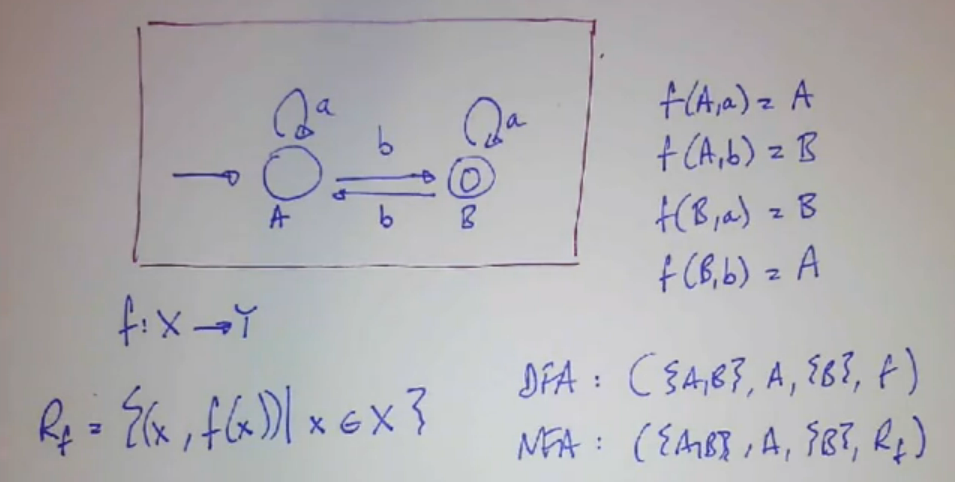 a a
b
A b B
f(A,a) = A
f(A,b) = B
f(B,a) = B
f(B,b) = A
f: X → Y
R_f = {(x, f(x)) | x ∈ X}
DFA : ({A,B}, A, {B}, f)
NFA : ({A,B}, A, {B}, R_f)